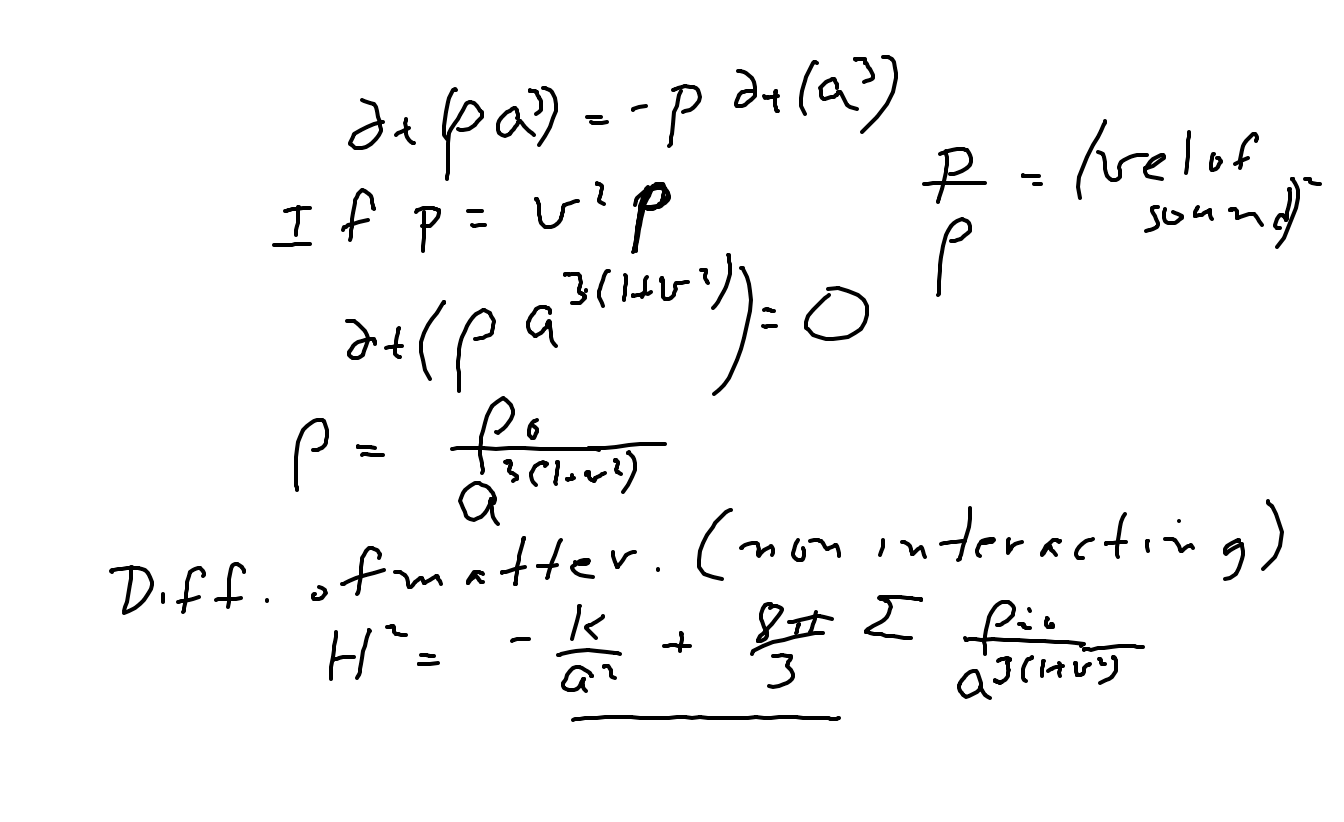 ∂t(ρa³) = -p ∂t(a³)
If p = v²ρ
p/ρ = (vel of sound)²
∂t(ρ a^{3(1+v²)}) = 0
ρ = ρ₀/a^{3(1+v²)}
Diff. of matter. (non interacting)
H² = -k/a² + 8π/3 Σ ρ_{i0}/a^{3(1+v²)}